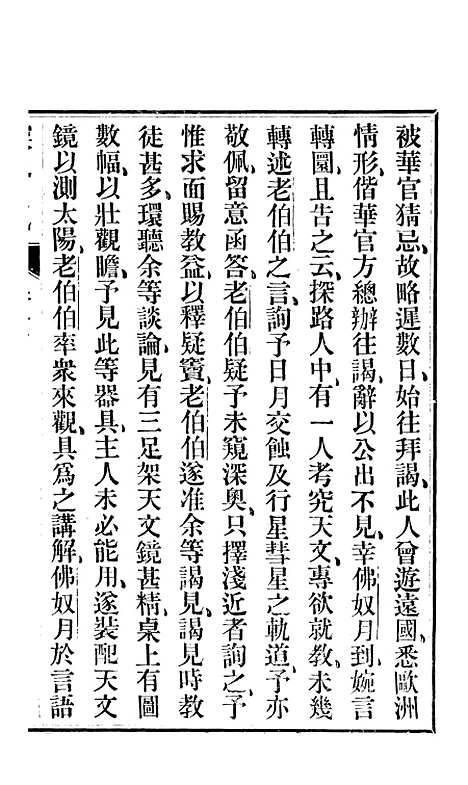 被華官猜忌、故略遲數日、始往拜謁、此人曾遊遠國、悉歐洲
情形、偕華官方總辦往謁、辭以公出不見、幸佛奴月到、婉言
轉圜、且告之云、探路人中、有一人考究天文、專欲就教、未幾
轉述老伯伯之言、詢予日月交蝕及行星彗星之軌道、予亦
敬佩、留意函答、老伯伯疑予未窺深奧、只擇淺近者詢之、予
惟求面賜教益、以釋疑竇、老伯伯遂准余等謁見、謁見時教
徒甚多、環聽余等談論、見有三足架天文鏡甚精、桌上有圖
數幅、以壯觀瞻、予見此等器具、主人未必能用、遂裝配天文
鏡以測太陽、老伯伯率衆來觀、具爲之講解、佛奴月於言語